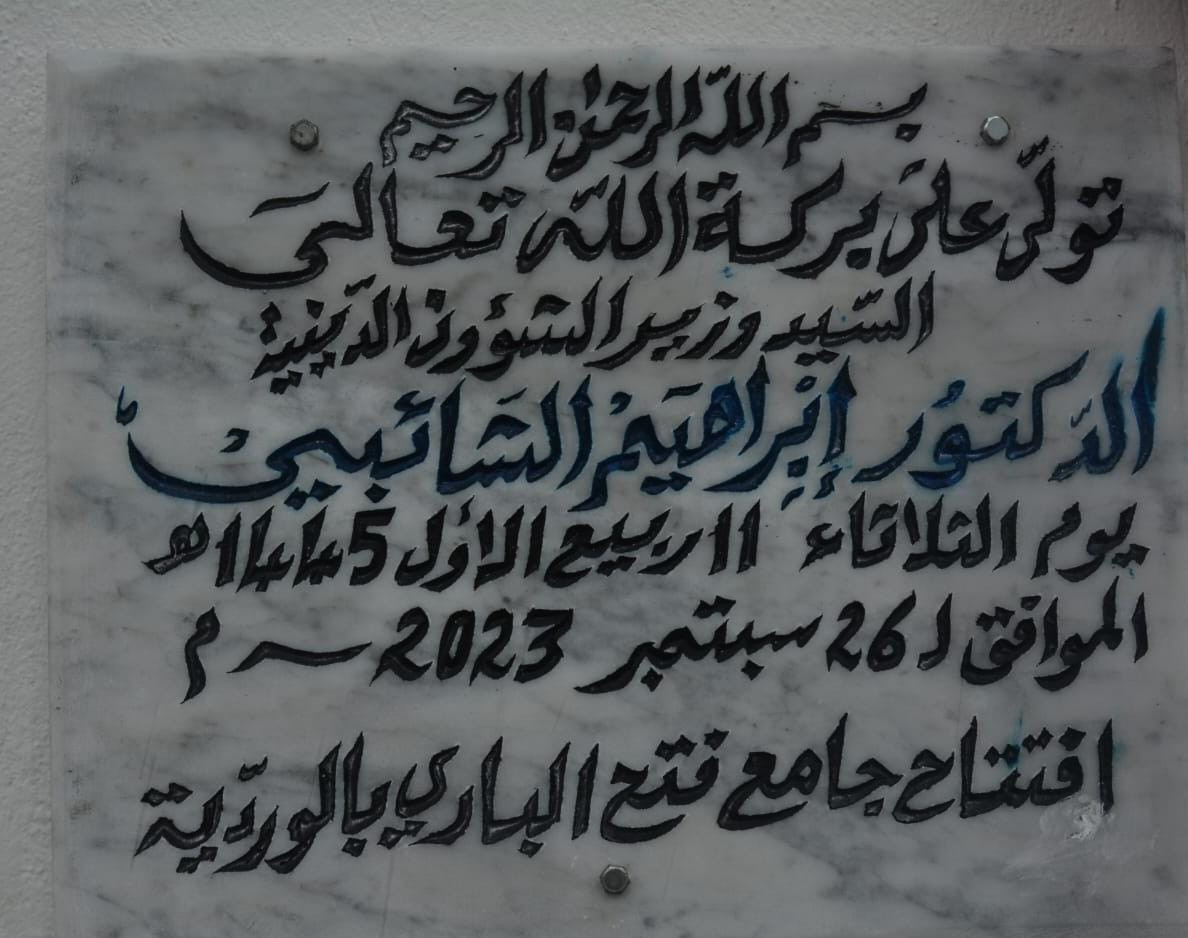 بسم اللّه الرحمٰن الرحيم
تولّى على بركة اللّه تعالى
السّيد وزير الشؤون الدّينية
الدّكتُور إِبْراهَيمْ الشَائبيْ
يوم الثلاثاء 11 ربيع الأول 1445هـ
الموافق لـ 26 سبتمبر 2023 م
افتتاح جامع فتح الباري بالورديّة